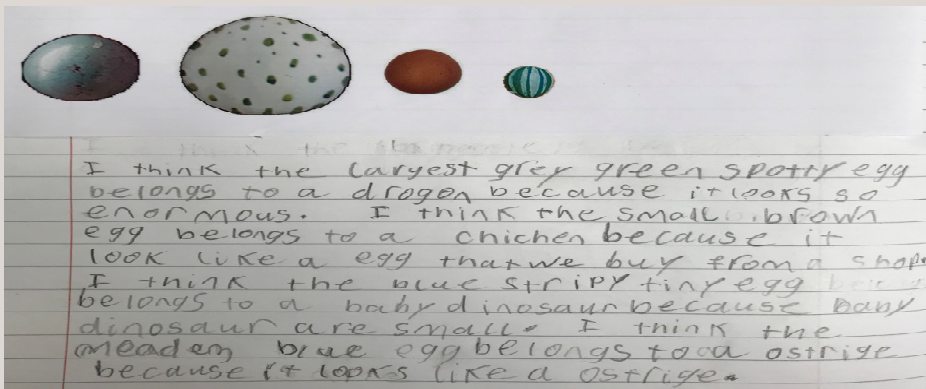 I think the
I think the largest grey green spotty egg
belongs to a drogon because it looks so
enormous. I think the small brown
egg belongs to a chichen because it
look like a egg that we buy from a shop.
I think the blue stripy tiny egg
belongs to a baby dinosaur because baby
dinosaur are small. I think the
meadem blue egg belongs to a ostrige
because it looks like a ostrige.